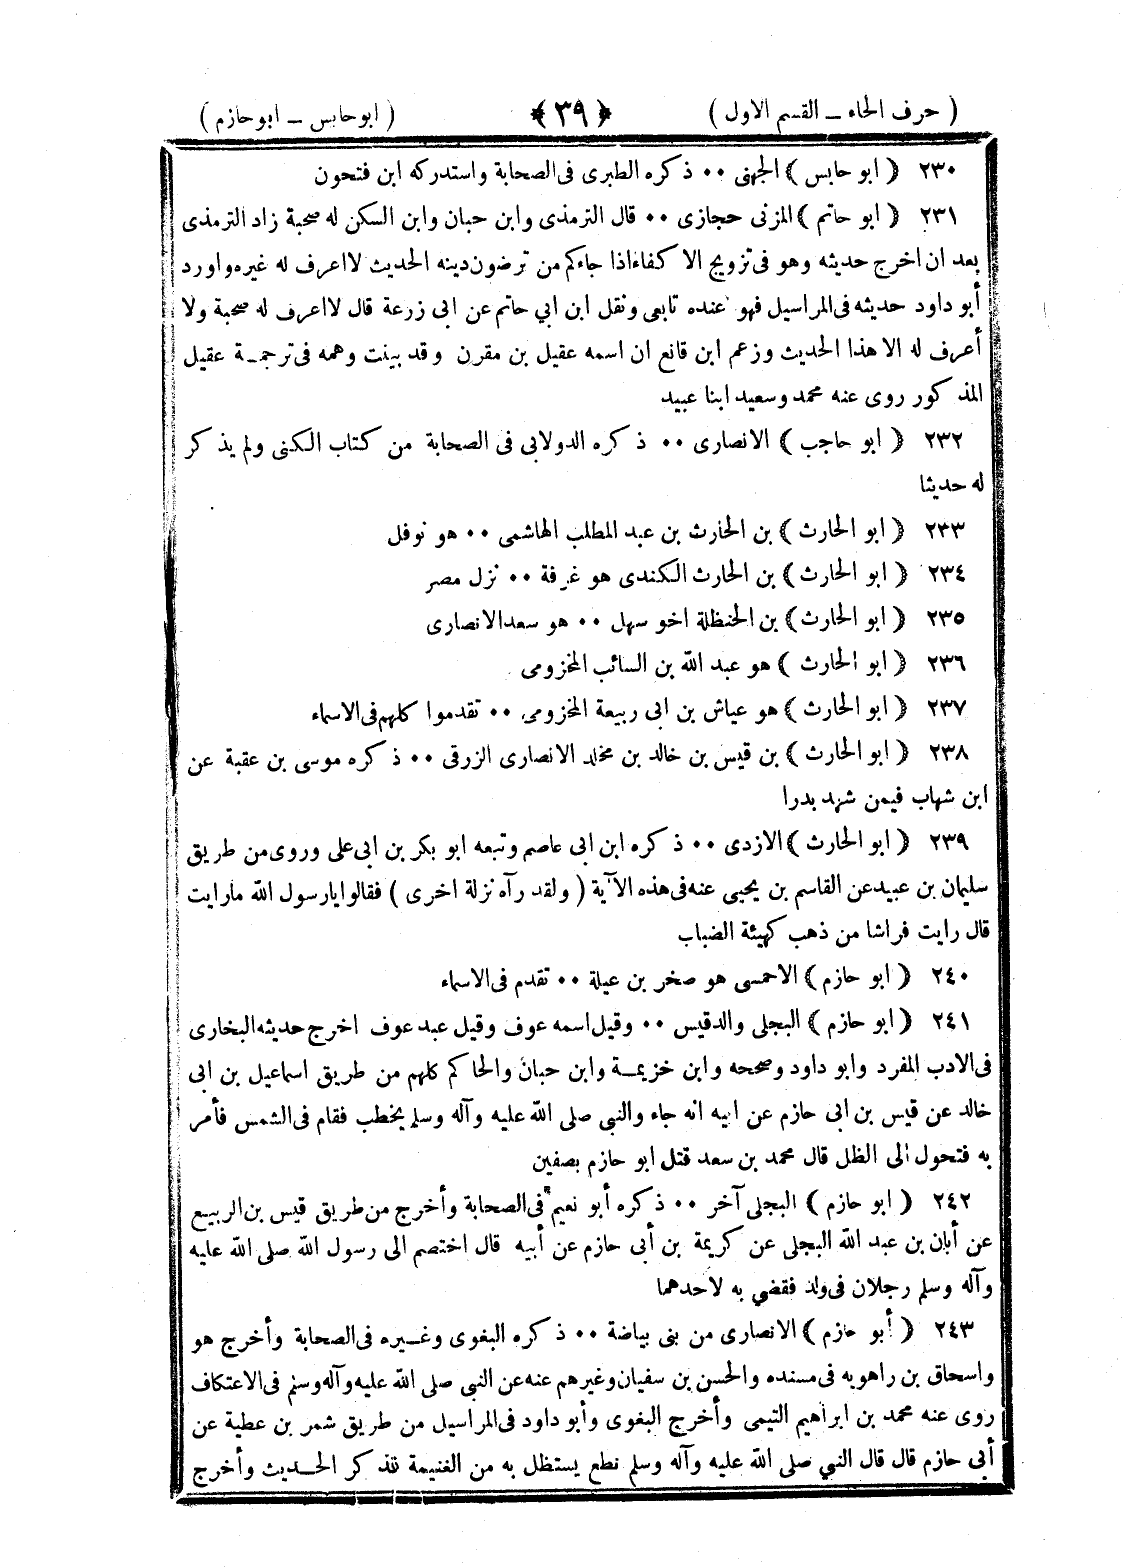 ( حرف الحاء ــ القسم الاول ) ﴿ ٣٩ ﴾ ( ابو حابس ــ ابو حازم )
٢٣٠ ﴿ ابو حابس ﴾ الجهنى ٠٠ ذكره الطبرى فى الصحابة واستدركه ابن فتحون
٢٣١ ﴿ ابو حاتم ﴾ المزنى حجازى ٠٠ قال الترمذى وابن حبان وابن السكن له صحبة زاد الترمذى
بعد ان اخرج حديثه وهو فى تزويج الاكفاء اذا جاءكم من ترضون دينه الحديث لا اعرف له غيره واورد
أبو داود حديثه فى المراسيل فهو عنده تابعى ونقل ابن ابي حاتم عن ابى زرعة قال لا اعرف له صحبة ولا
أعرف له الا هذا الحديث وزعم ابن قانع ان اسمه عقيل بن مقرن وقد بينت وهمه فى ترجمة عقيل
المذكور روى عنه محمد وسعيد ابنا عبيد
٢٣٢ ﴿ ابو حاجب ﴾ الانصارى ٠٠ ذكره الدولابى فى الصحابة من كتاب الكنى ولم يذكر
له حديثا
٢٣٣ ﴿ ابو الحارث ﴾ بن الحارث بن عبد المطلب الهاشمى ٠٠ هو نوفل
٢٣٤ ﴿ ابو الحارث ﴾ بن الحارث الكندى هو غرفة ٠٠ نزل مصر
٢٣٥ ﴿ ابو الحارث ﴾ بن الحنظلة اخو سهل ٠٠ هو سعد الانصارى
٢٣٦ ﴿ ابو الحارث ﴾ هو عبد الله بن السائب المخزومى
٢٣٧ ﴿ ابو الحارث ﴾ هو عياش بن ابى ربيعة المخزومى ٠٠ تقدموا كلهم فى الاسماء
٢٣٨ ﴿ ابو الحارث ﴾ بن قيس بن خالد بن مخلد الانصارى الزرقى ٠٠ ذكره موسى بن عقبة عن
ابن شهاب فيمن شهد بدرا
٢٣٩ ﴿ ابو الحارث ﴾ الازدى ٠٠ ذكره ابن ابى عاصم وتبعه ابو بكر بن ابى على وروى من طريق
سليمان بن عبيد عن القاسم بن يحيى عنه فى هذه الآية ( ولقد رآه نزلة اخرى ) فقالوا يا رسول الله ما رايت
قال رايت فراشا من ذهب كهيئة الضباب
٢٤٠ ﴿ ابو حازم ﴾ الاحمسى هو صخر بن عيلة ٠٠ تقدم فى الاسماء
٢٤١ ﴿ ابو حازم ﴾ البجلى والد قيس ٠٠ وقيل اسمه عوف وقيل عبد عوف اخرج حديثه البخارى
فى الادب المفرد وابو داود وصححه وابن خزيمة وابن حبان والحاكم كلهم من طريق اسماعيل بن ابى
خالد عن قيس بن ابى حازم عن ابيه انه جاء والنبى صلى الله عليه وآله وسلم يخطب فقام فى الشمس فأمر
به فتحول الى الظل قال محمد بن سعد قتل ابو حازم بصفين
٢٤٢ ﴿ ابو حازم ﴾ البجلى آخر ٠٠ ذكره أبو نعيم فى الصحابة وأخرج من طريق قيس بن الربيع
عن أبان بن عبد الله البجلى عن كريمة بن أبى حازم عن أبيه قال اختصم الى رسول الله صلى الله عليه
وآله وسلم رجلان فى ولد فقضى به لاحدهما
٢٤٣ ﴿ أبو حازم ﴾ الانصارى من بنى بياضة ٠٠ ذكره البغوى وغيره فى الصحابة وأخرج هو
واسحاق بن راهويه فى مسنده والحسن بن سفيان وغيرهم عنه عن النبى صلى الله عليه وآله وسلم فى الاعتكاف
روى عنه محمد بن ابراهيم التيمى وأخرج البغوى وأبو داود فى المراسيل من طريق شمر بن عطية عن
أبى حازم قال قال النبي صلى الله عليه وآله وسلم نطع يستظل به من الغنيمة فذكر الحديث وأخرج